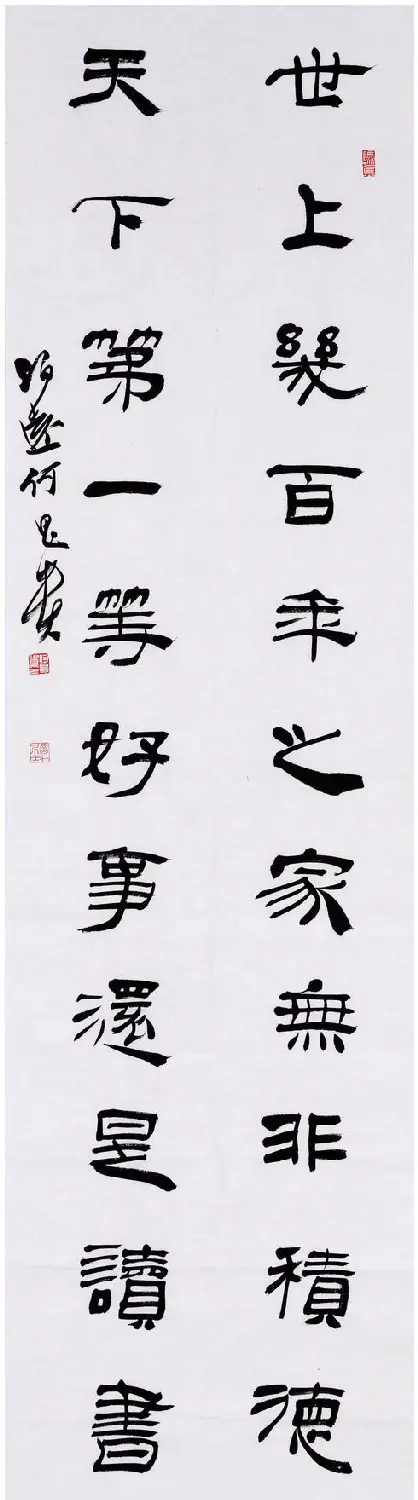 世上幾百年之家無非積德
天下第一等好事還是讀書
何